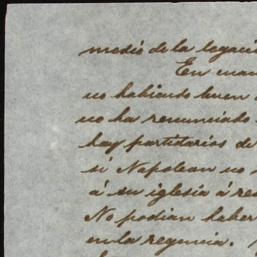 medio de la legació
En cuan
no habiendo buen
no ha renunciado
hay partidarios de
si Napoleon no
á su iglesia á re
No podian haber
en la regencia.